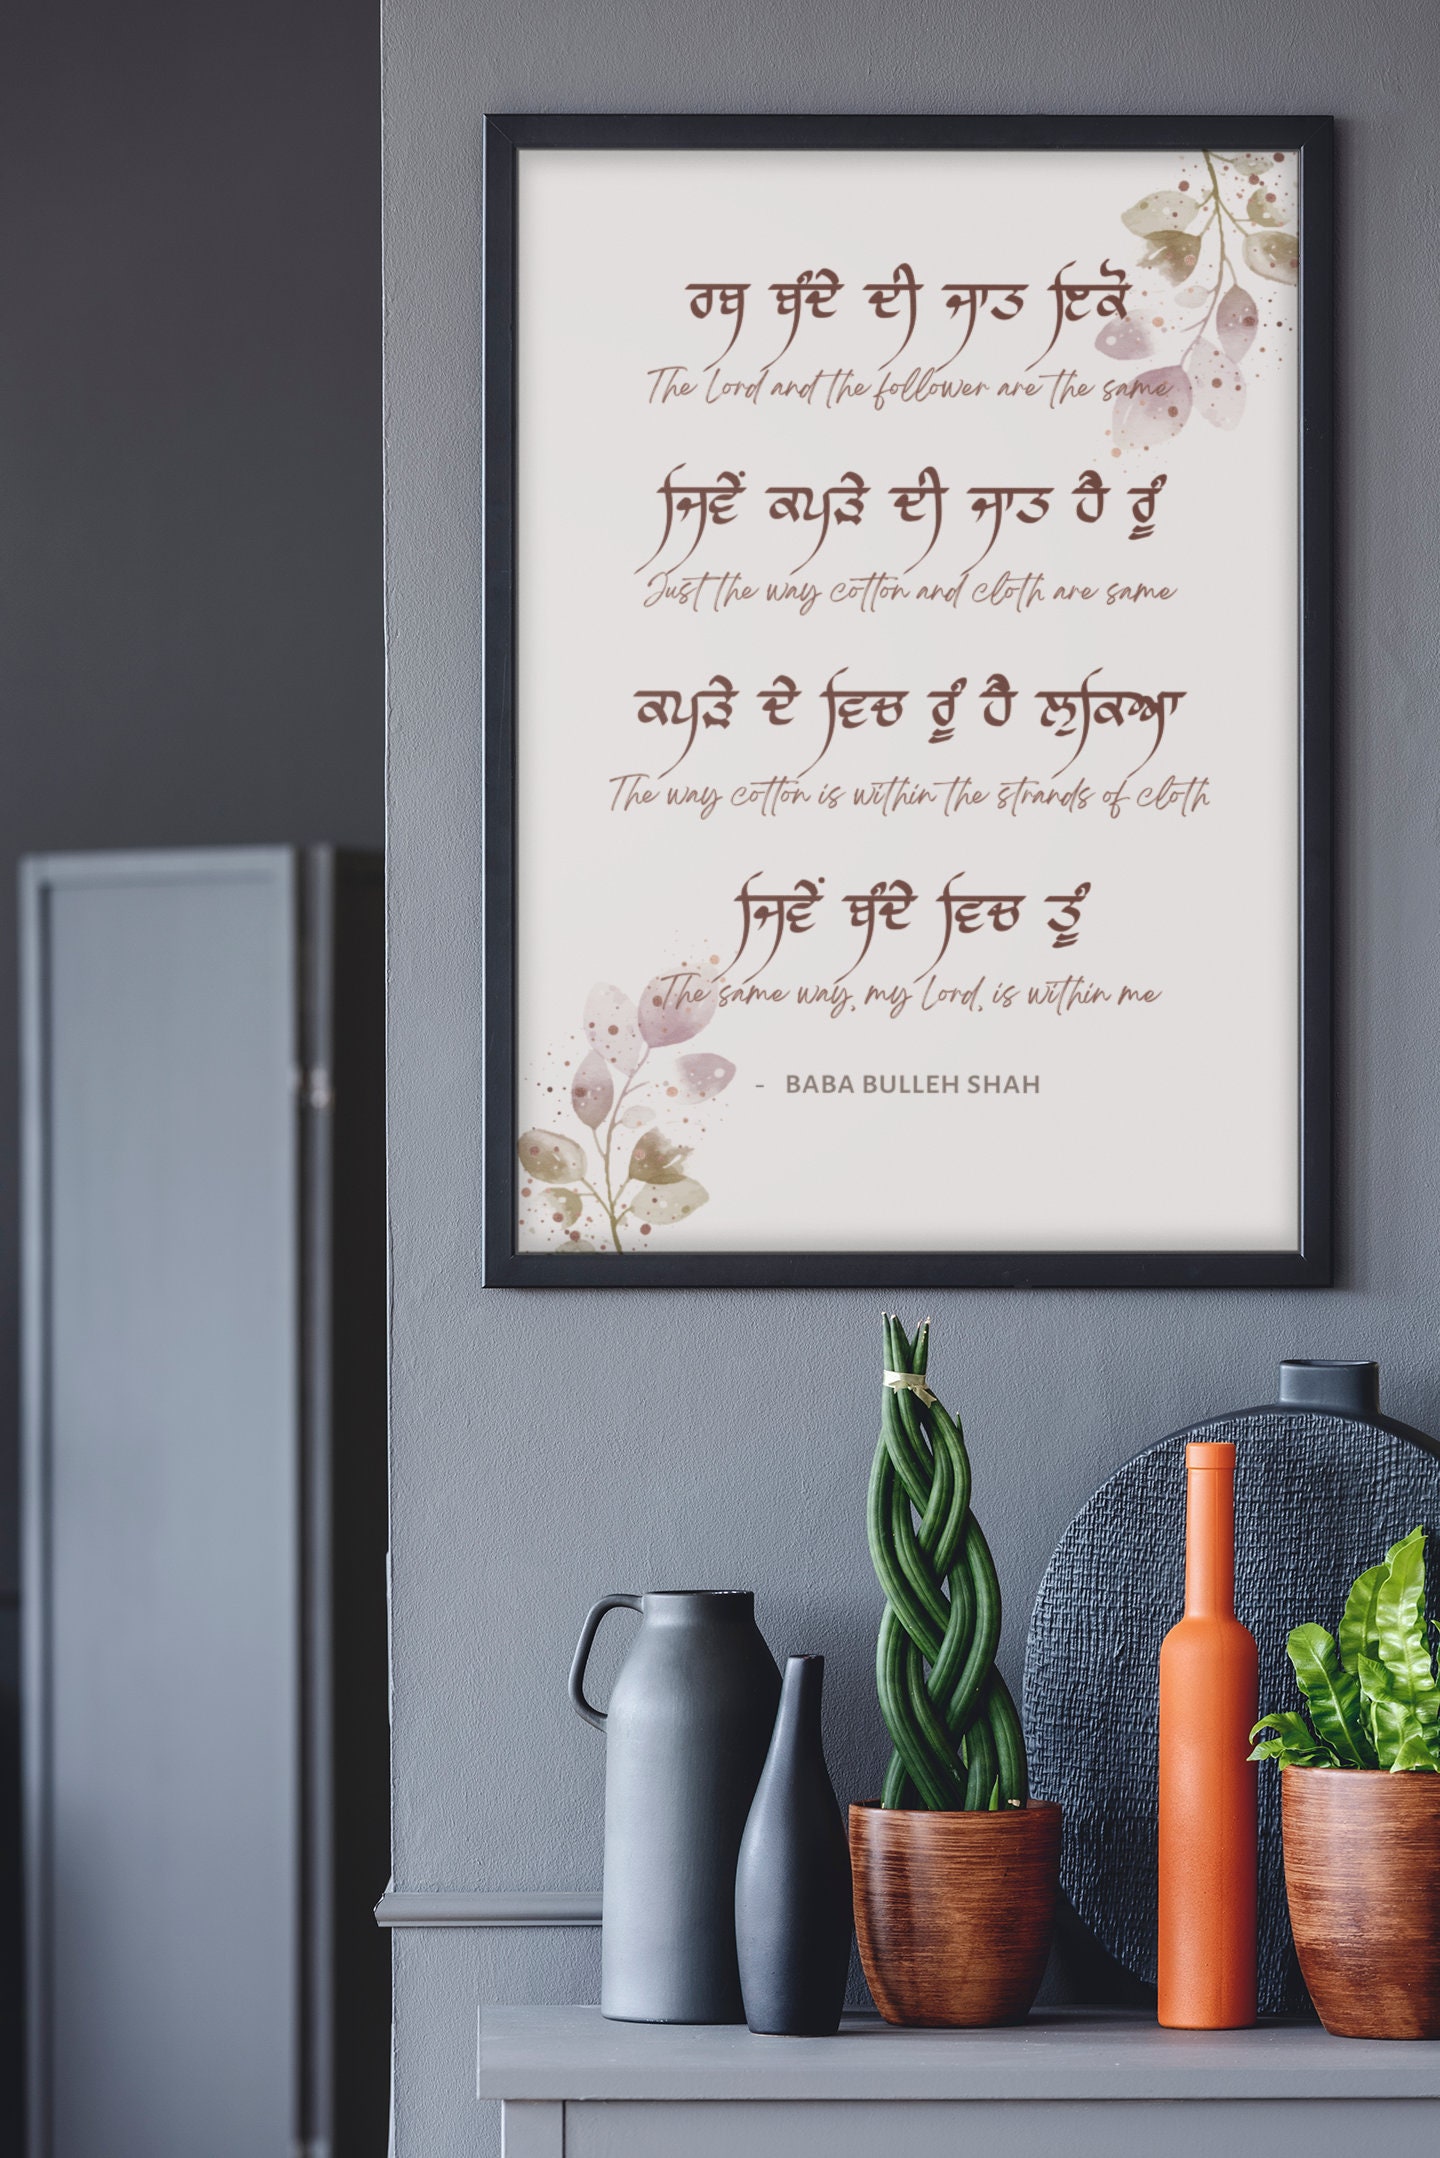 ਰਬ ਬੰਦੇ ਦੀ ਜਾਤ ਇਕੋ
The Lord and the follower are the same
ਜਿਵੇਂ ਕਪੜੇ ਦੀ ਜਾਤ ਹੈ ਰੂੰ
Just the way cotton and cloth are same
ਕਪੜੇ ਦੇ ਵਿਚ ਰੂੰ ਹੈ ਲੁਕਿਆ
The way cotton is within the strands of cloth
ਜਿਵੇਂ ਬੰਦੇ ਵਿਚ ਤੂੰ
The same way, my Lord, is within me
- BABA BULLEH SHAH